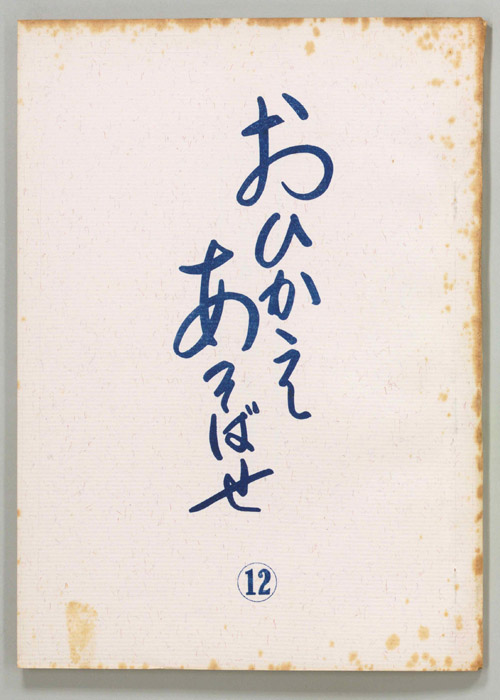 おひかえ
あそばせ
12